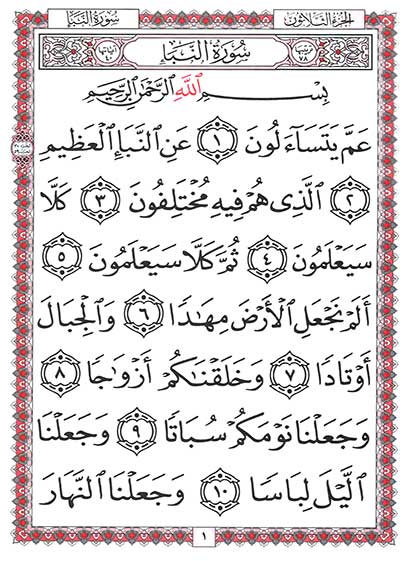 الجزء الثلاثون سورة النبإ
ترتيبها ٧٨ سُورَةُ النَّبَإِ آياتها ٤٠
بِسْمِ اللَّهِ الرَّحْمَٰنِ الرَّحِيمِ
عَمَّ يَتَسَاءَلُونَ ١ عَنِ النَّبَإِ الْعَظِيمِ
٢ الَّذِي هُمْ فِيهِ مُخْتَلِفُونَ ٣ كَلَّا
سَيَعْلَمُونَ ٤ ثُمَّ كَلَّا سَيَعْلَمُونَ ٥
أَلَمْ نَجْعَلِ الْأَرْضَ مِهَادًا ٦ وَالْجِبَالَ
أَوْتَادًا ٧ وَخَلَقْنَاكُمْ أَزْوَاجًا ٨
وَجَعَلْنَا نَوْمَكُمْ سُبَاتًا ٩ وَجَعَلْنَا
اللَّيْلَ لِبَاسًا ١٠ وَجَعَلْنَا النَّهَارَ
١